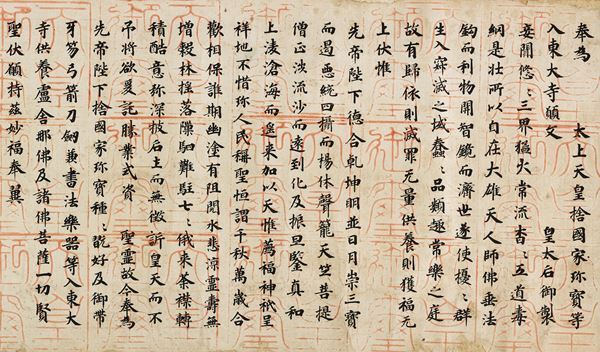 奉為　太上天皇捨國家珎寶等
入東大寺願文　皇太后御製
妾聞悠々三界猛火常流杳々五道毒
網是壯所以自在大雄天人師佛垂法
鈎而利物開智鏡而濟世遂使擾々群
生入寂滅之域蠢々品類趣常樂之庭
故有歸依則滅罪无量供養則獲福无
上伏惟
先帝陛下德合乾坤明並日月崇三寶
而遏惡統四攝而揚休聲籠天竺菩提
僧正涉流沙而遠到化及振旦鑒真和
上凌滄海而遙來加以天惟薦福神祇呈
祥地不惜珎人民稱聖恒謂千秋萬歲合
歡相保誰期幽塗有阻閱水悲涼靈壽無
增穀林搖落隟駟難駐七々俄來荼襟轉
積酷意弥深披后土而無徵訴皇天而不
弔將欲爰託勝業式資　聖靈故今奉為
先帝陛下捨國家珎寶種々翫好及御帶
牙笏弓箭刀劔兼書法樂器等入東大
寺供養盧舍那佛及諸佛菩薩一切賢
聖伏願持茲妙福奉翼